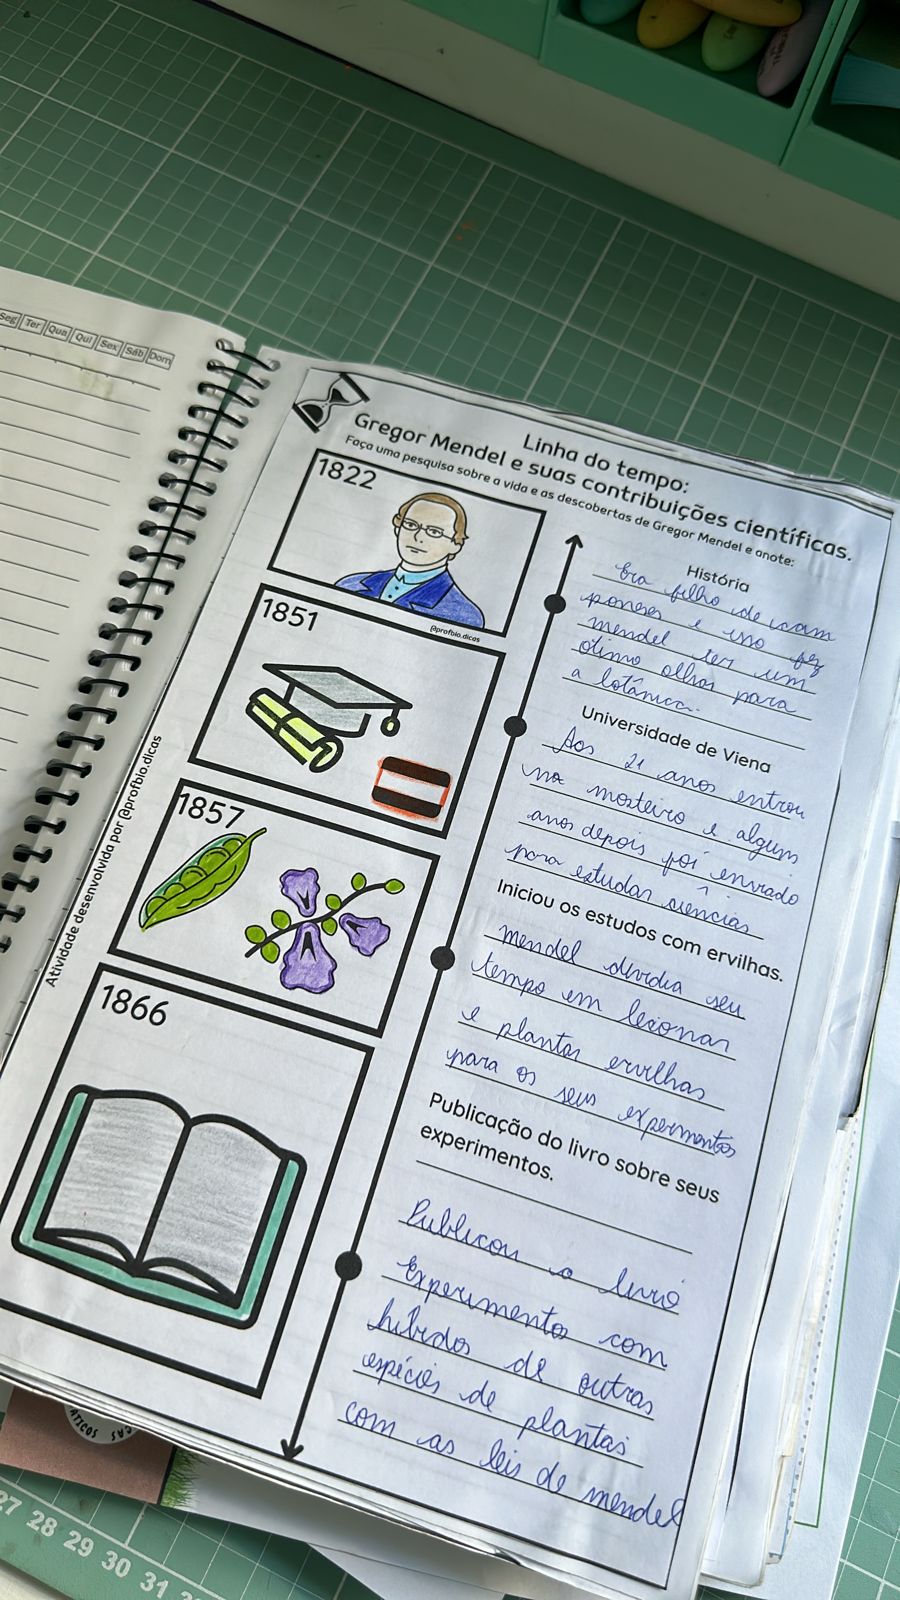 Seg Ter Qua Qui Sex Sáb Dom
Linha do tempo:
Gregor Mendel e suas contribuições científicas.
Faça uma pesquisa sobre a vida e as descobertas de Gregor Mendel e anote:
1822
@profbio.dicas
História
Era filho de cam
poneses e isso fez
mendel ter um
ótimo olhar para
a botânica.
1851
Universidade de Viena
Aos 21 anos entrou
no mosteiro e alguns
anos depois foi enviado
para estudar ciências
1857
Iniciou os estudos com ervilhas.
mendel dividia seu
tempo em lecionar
e plantar ervilhas
para os seus experimentos
1866
Publicação do livro sobre seus
experimentos.
Publicou o livro
Experimentos com
híbridos de outras
espécies de plantas
com as leis de mendel
Atividade desenvolvida por @profbio.dicas
27 28 29 30 31